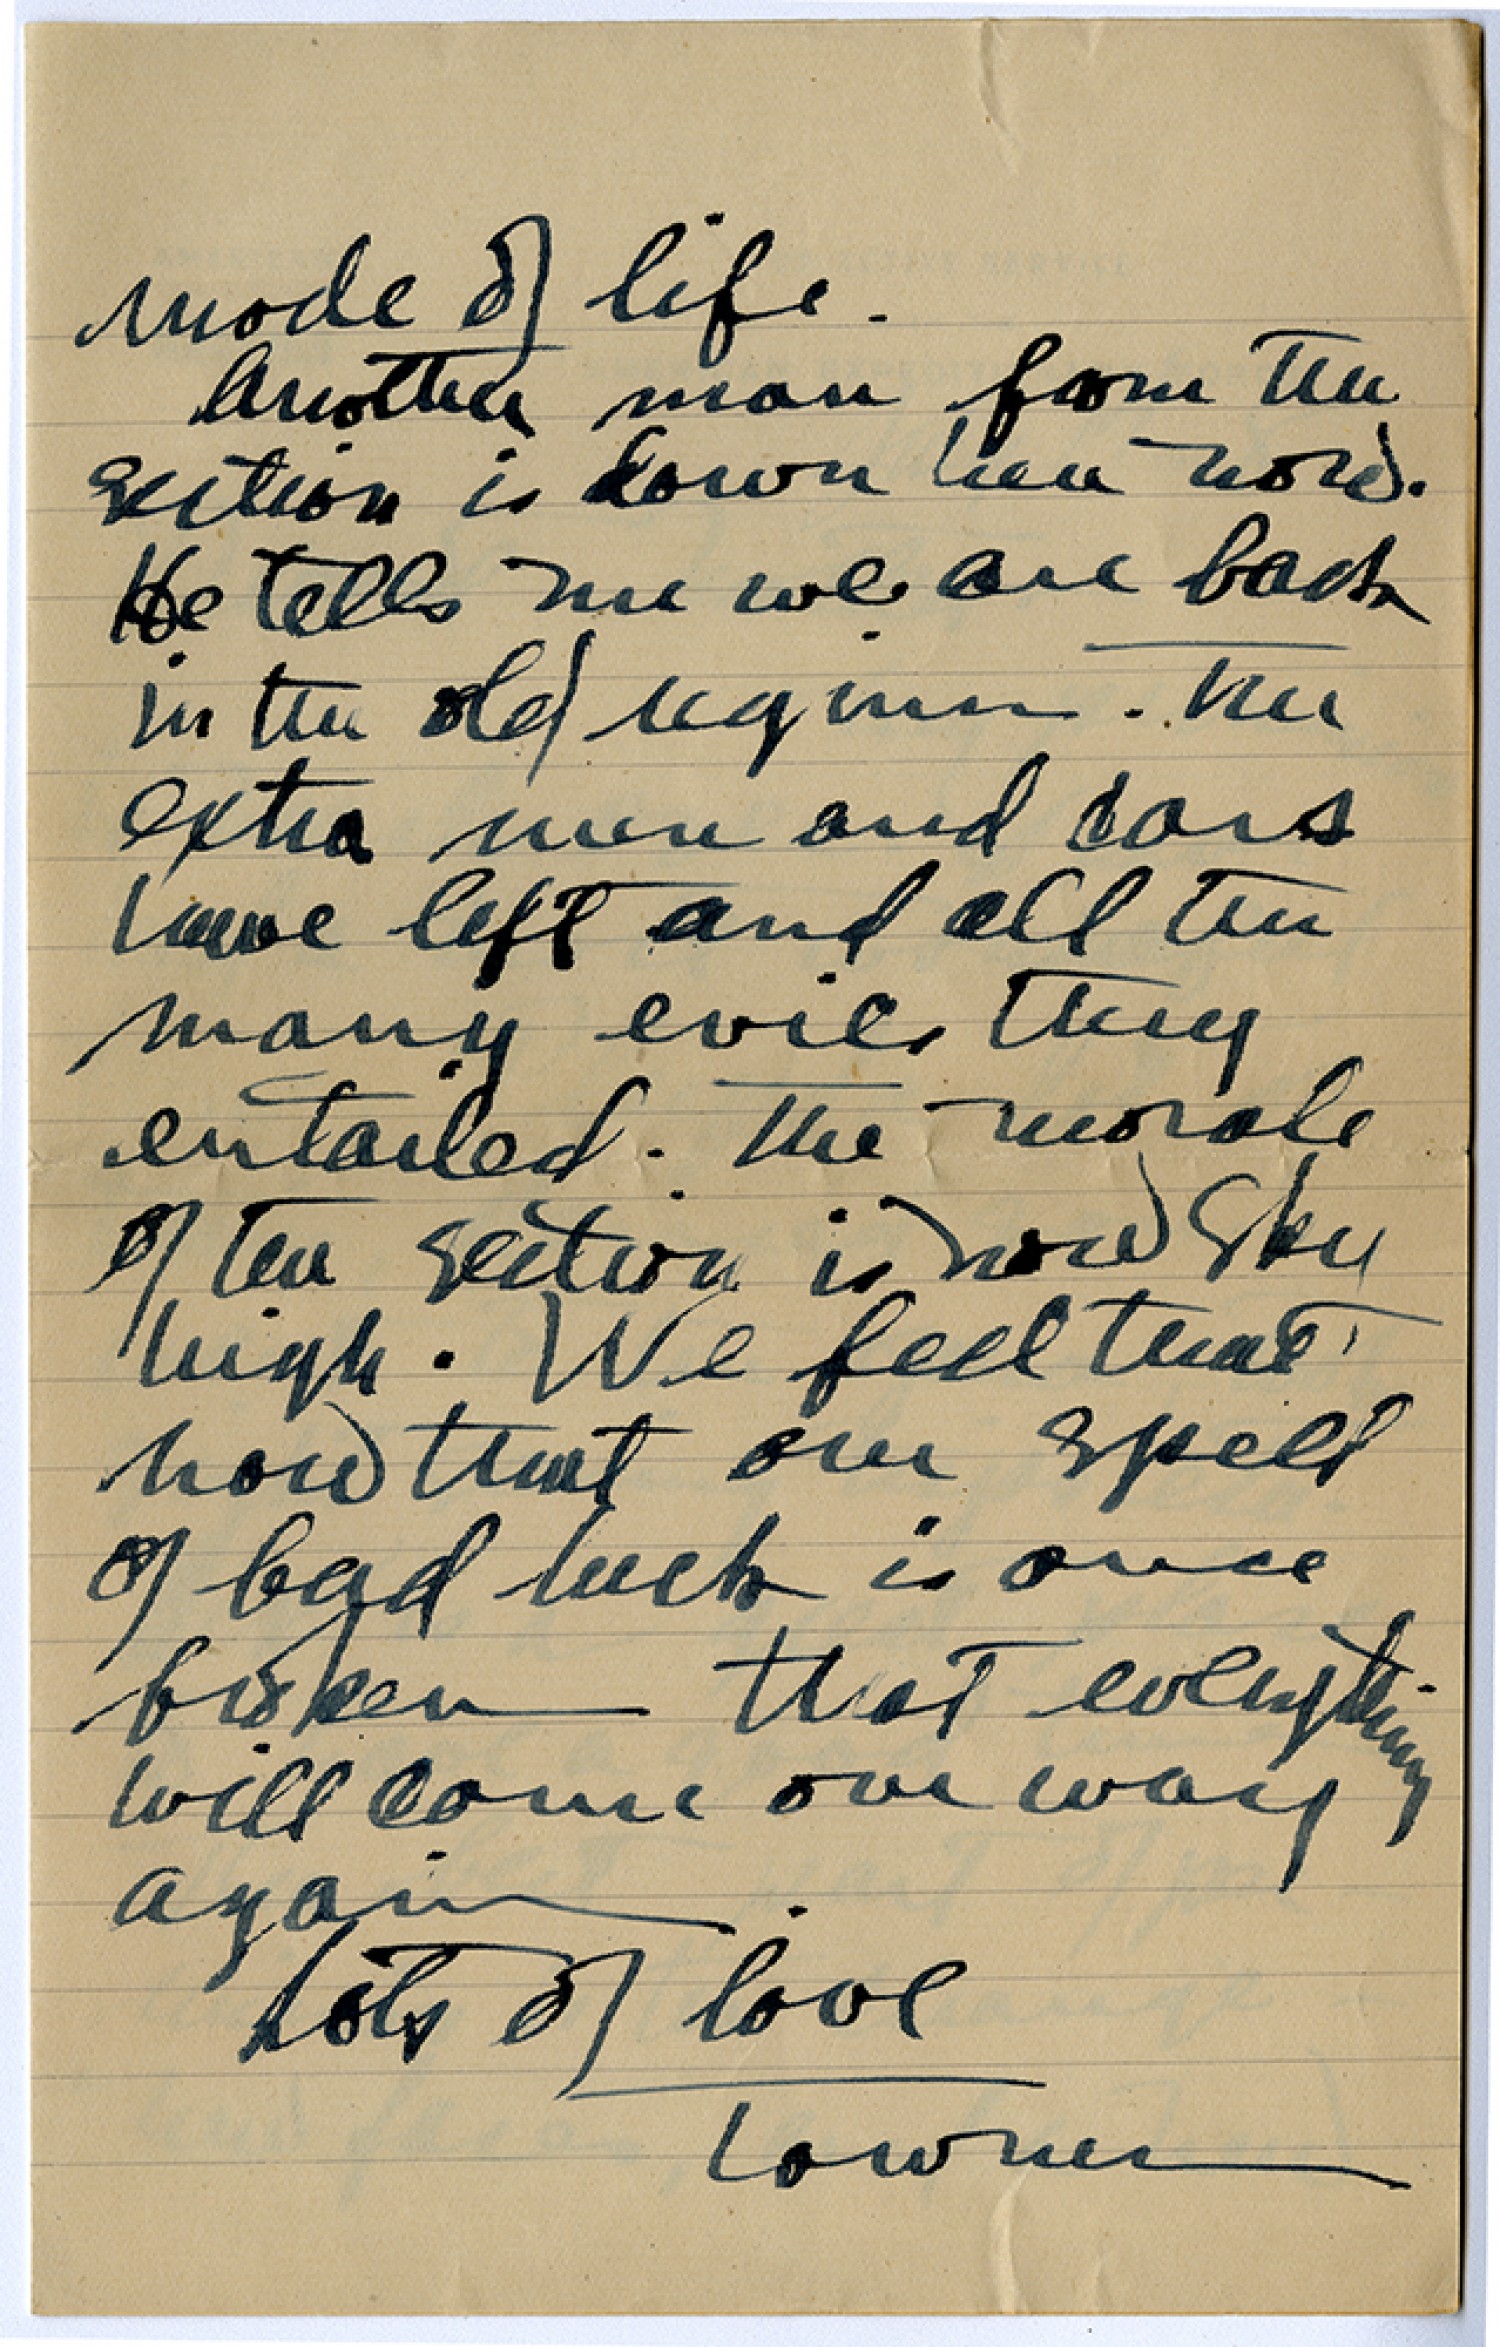 mode of life.
Another man from the
section is down here now.
He tells me we are back
in the old regime. The
extra men and cars
have left and all the
many evils they
entailed. The morale
of the section is now sky
high. We feel that
now that our spell
of bad luck is once
broken that everything
will come our way
again.
Lots of love
Towner